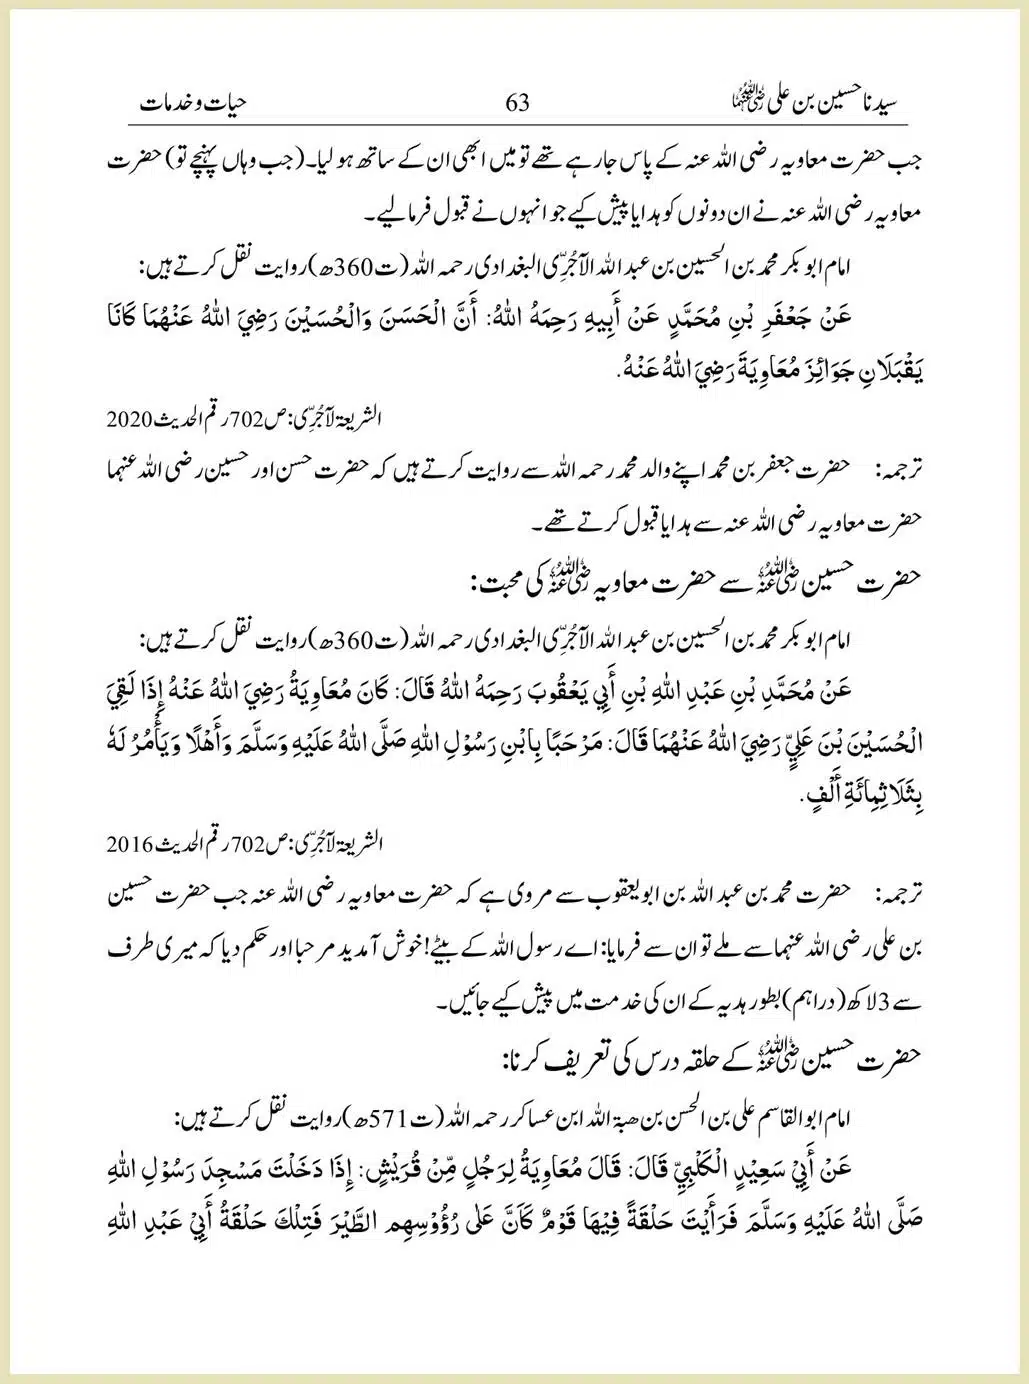 سیدنا حسین بن علی رضی اللہ عنہما 63 حیات و خدمات
جب حضرت معاویہ رضی اللہ عنہ کے پاس جا رہے تھے تو میں ابھی ان کے ساتھ ہو لیا۔ (جب وہاں پہنچے تو) حضرت
معاویہ رضی اللہ عنہ نے ان دونوں کو ہدایا پیش کیے جو انہوں نے قبول فرما لیے۔
امام ابو بکر محمد بن الحسین بن عبد اللہ الآجُرِّی البغدادی رحمہ اللہ (ت360ھ) روایت نقل کرتے ہیں:
عَنْ جَعْفَرِ بْنِ مُحَمَّدٍ عَنْ أَبِيهِ رَحِمَهُ اللهُ: أَنَّ الْحَسَنَ وَالْحُسَيْنَ رَضِيَ اللهُ عَنْهُمَا كَانَا
يَقْبَلَانِ جَوَائِزَ مُعَاوِيَةَ رَضِيَ اللهُ عَنْهُ.
الشریعۃ لآجُرِّی: ص702 رقم الحدیث 2020
ترجمہ: حضرت جعفر بن محمد اپنے والد محمد رحمہ اللہ سے روایت کرتے ہیں کہ حضرت حسن اور حسین رضی اللہ عنہما
حضرت معاویہ رضی اللہ عنہ سے ہدایا قبول کرتے تھے۔
حضرت حسین رضی اللہ عنہ سے حضرت معاویہ رضی اللہ عنہ کی محبت:
امام ابو بکر محمد بن الحسین بن عبد اللہ الآجُرِّی البغدادی رحمہ اللہ (ت360ھ) روایت نقل کرتے ہیں:
عَنْ مُحَمَّدِ بْنِ عَبْدِ اللهِ بْنِ أَبِي يَعْقُوبَ رَحِمَهُ اللهُ قَالَ: كَانَ مُعَاوِيَةُ رَضِيَ اللهُ عَنْهُ إِذَا لَقِيَ
الْحُسَيْنَ بْنَ عَلِيٍّ رَضِيَ اللهُ عَنْهُمَا قَالَ: مَرْحَبًا بِابْنِ رَسُوْلِ اللهِ صَلَّى اللهُ عَلَيْهِ وَسَلَّمَ وَأَهْلًا وَيَأْمُرُ لَهُ
بِثَلَاثِمِائَةِ أَلْفٍ.
الشریعۃ لآجُرِّی: ص702 رقم الحدیث 2016
ترجمہ: حضرت محمد بن عبد اللہ بن ابو یعقوب سے مروی ہے کہ حضرت معاویہ رضی اللہ عنہ جب حضرت حسین
بن علی رضی اللہ عنہما سے ملے تو ان سے فرمایا: اے رسول اللہ کے بیٹے! خوش آمدید مرحبا اور حکم دیا کہ میری طرف
سے 3 لاکھ (دراہم) بطور ہدیہ کے ان کی خدمت میں پیش کیے جائیں۔
حضرت حسین رضی اللہ عنہ کے حلقہ درس کی تعریف کرنا:
امام ابو القاسم علی بن الحسن بن ھبۃ اللہ ابن عساکر رحمہ اللہ (ت571ھ) روایت نقل کرتے ہیں:
عَنْ أَبِيْ سَعِيْدٍ الْكَلْبِيِّ قَالَ: قَالَ مُعَاوِيَةُ لِرَجُلٍ مِّنْ قُرَيْشٍ: إِذَا دَخَلْتَ مَسْجِدَ رَسُوْلِ اللهِ
صَلَّى اللهُ عَلَيْهِ وَسَلَّمَ فَرَأَيْتَ حَلْقَةً فِيْهَا قَوْمٌ كَاَنَّ عَلٰى رُؤُوْسِهِم الطَّيْرَ فَتِلْكَ حَلْقَةُ أَبِيْ عَبْدِ اللهِ